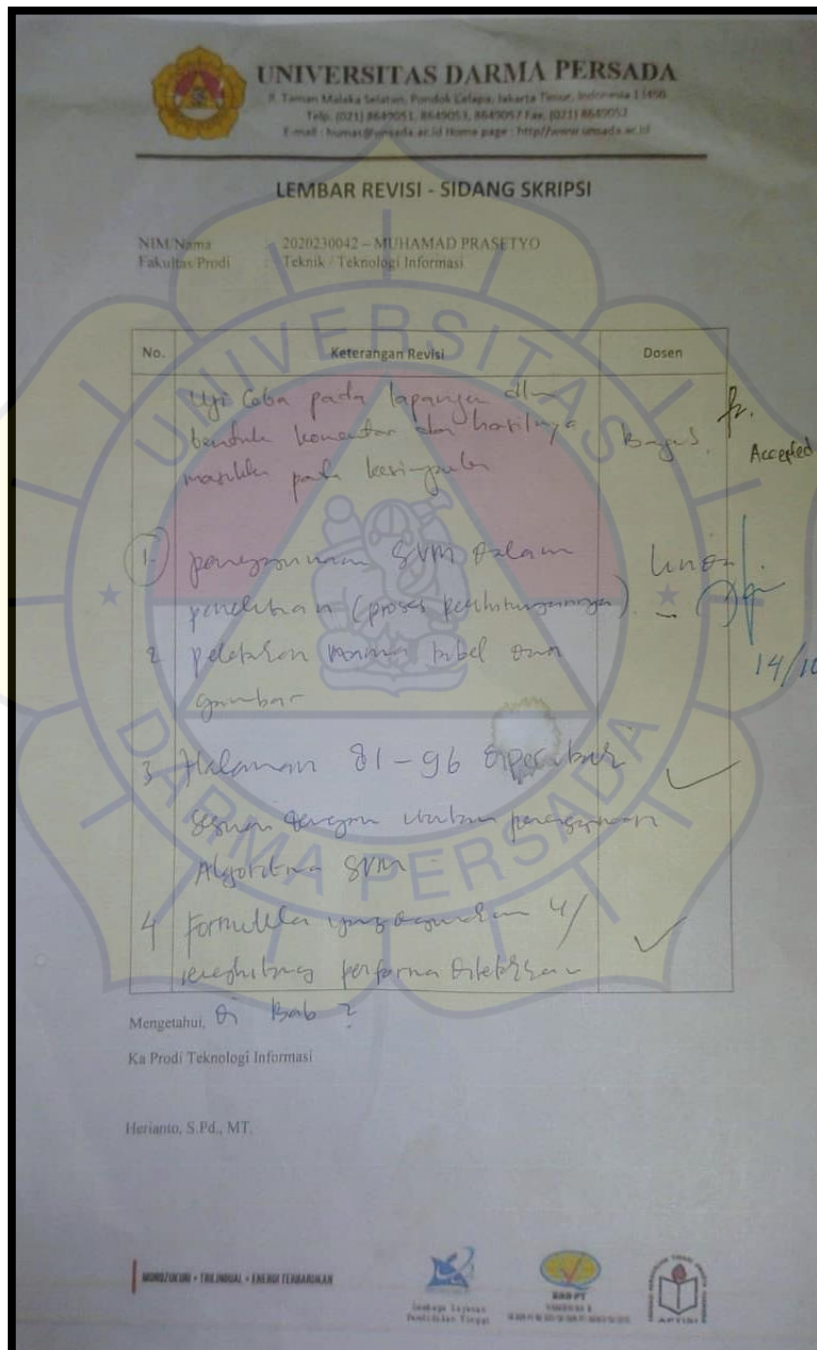 UNIVERSITAS DARMA PERSADA
Jl. Taman Malaka Selatan, Pondok Kelapa, Jakarta Timur, Indonesia 13450
Telp. (021) 8649051, 8649053, 8649057 Fax. (021) 8649052
E-mail : humas@unsada.ac.id Home page : http//www.unsada.ac.id
LEMBAR REVISI - SIDANG SKRIPSI
NIM/Nama : 2020230042 – MUHAMAD PRASETYO
Fakultas/Prodi : Teknik / Teknologi Informasi
No. Keterangan Revisi Dosen
Uji Coba pada lapangan dlm
bentuk komentar dan hasilnya Bagus.
pada kesimpulan Accepted
1. penggunaan SVM dalam
penelitian (proses perhitungannya).
2 peletakan nama tabel dan 14/10
gambar
3 Halaman 81-96
sesuai dengan penggunaan
Algoritma SVM
4 Formulasi yang digunakan u/
menghitung performa diletakkan
di Bab 2
Mengetahui,
Ka Prodi Teknologi Informasi
Herianto, S.Pd., MT.
MONOZUKURI • TRILINGUAL • ENERGI TERBARUKAN
Lembaga Layanan
Pendidikan Tinggi
BAN-PT
APTISI
UNIVERSITAS
DARMA PERSADA